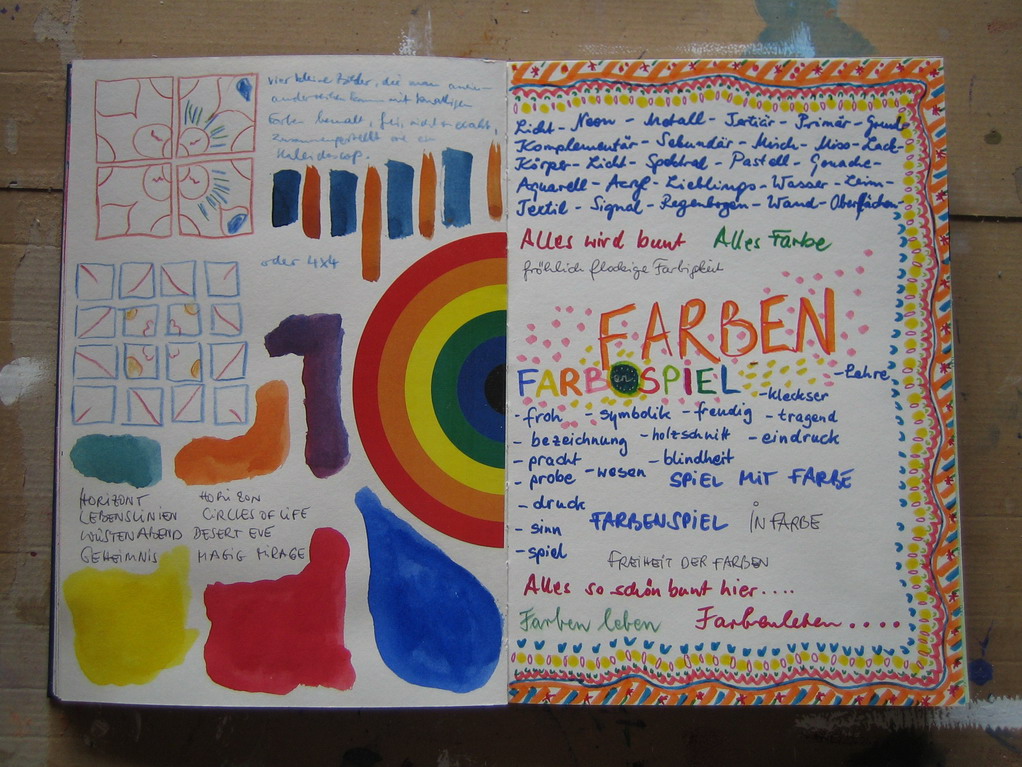 vier kleine Bilder, die man anein-
anderreihen kann mit kräftigen
Farben bemalt, frei, nicht exakt,
zusammengestellt wie ein
Kaleidoskop.
oder 4x4
HORIZONT HORIZON
LEBENSLINIEN CIRCLES OF LIFE
WÜSTENABEND DESERT EVE
GEHEIMNIS MAGIG MIRAGE
Licht - Neon - Metall - Tertiär - Primär - Grund-
Komplementär - Sekundär - Misch - Miso - Lack-
Körper - Licht - Spektral - Pastell - Gouache-
Aquarell - Acryl - Lieblings - Wasser - Leim-
Textil - Signal - Regenbogen - Wand - Oberflächen-
Alles wird bunt Alles Farbe
fröhlich flockige Farbigkeit
FARBEN
FARBEN SPIEL
-Lehre
-kleckser
- froh - symbolik - freudig - tragend
- bezeichnung - holzschnitt - eindruck
- pracht - wesen - blindheit
- probe SPIEL MIT FARBE
- druck
- sinn FARBENSPIEL IN FARBE
- spiel FREIHEIT DER FARBEN
Alles so schön bunt hier....
Farben leben Farbenleben....